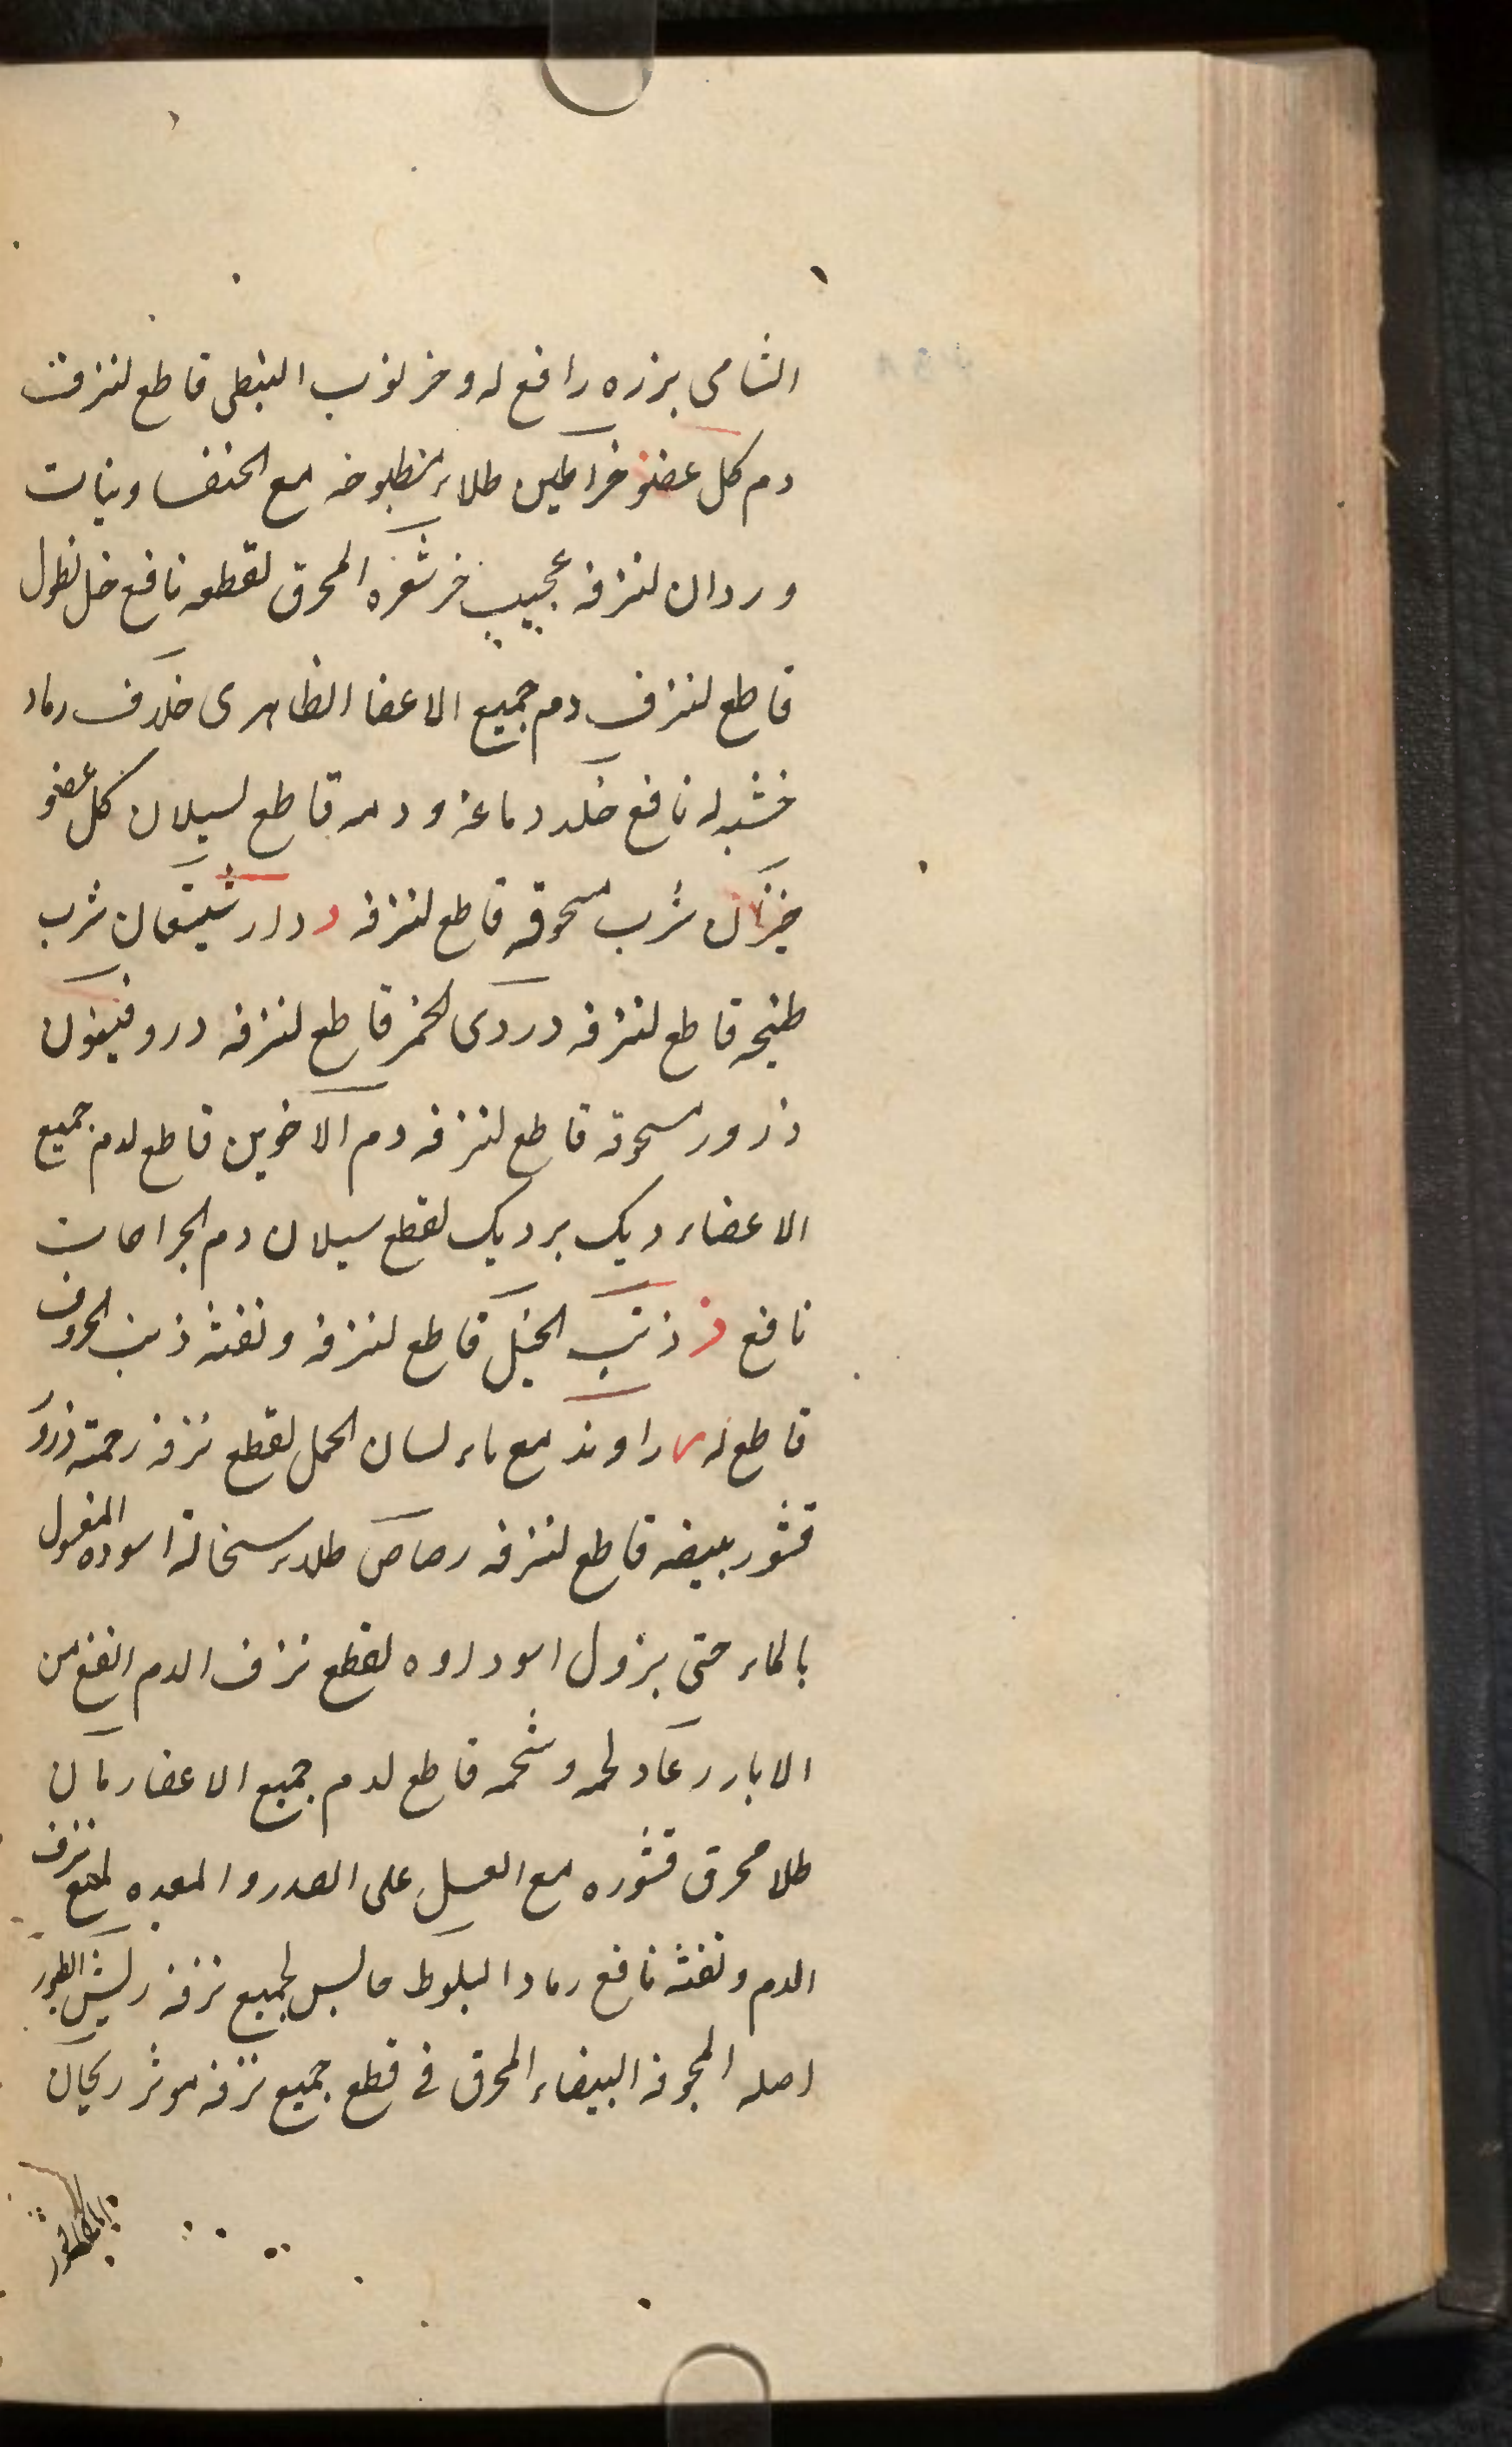 الشامی بزره رافع له و خرنوب النبطی قاطع لنزفت
دم کل عضو خراطین طلاء مطبوخه مع الخنفسا و بنات
وردان لنزفه عجیب خز شعره المحرق لقطعه نافع خل نطول
قاطع لنزف دم جمیع الاعضا الظاهری خلاف رماد
خشبه له نافع خلد دماغه و دمه قاطع لسیلان کل عضو
شرب مسحوقه قاطع لنزفه د دارشیشعان شرب
طبیخه قاطع لنزفه دردی الخمر قاطع لنزفه دروفینون
ذرور مسحوقه قاطع لنزفه دم الاخوین قاطع لدم جمیع
الاعضاء دیک بردیک لقطع سیلان دم الجراحات
نافع ذ ذنب الخیل قاطع لنزفه و نفثه ذنب الخروف
قاطع له ر راوند مع ماء لسان الحمل لقطع نزفه رخمة ذرور
قشور بیضه قاطع لنزفه رصاص طلاء سخالة اسوده المغسول
بالماء حتی یزول اسوداده لقطع نزف الدم انفع من
الابار رعاد لحمه و شحمه قاطع لدم جمیع الاعضا رمان
طلا محرق قشوره مع العسل علی الصدر و المعده لمنع نزف
الدم و نفثه نافع رماد البلوط حابس لجمیع نزفه ریش الطیور
اصله المجوفة البیضاء المحرق فی قطع جمیع نزفه موثر ریحان